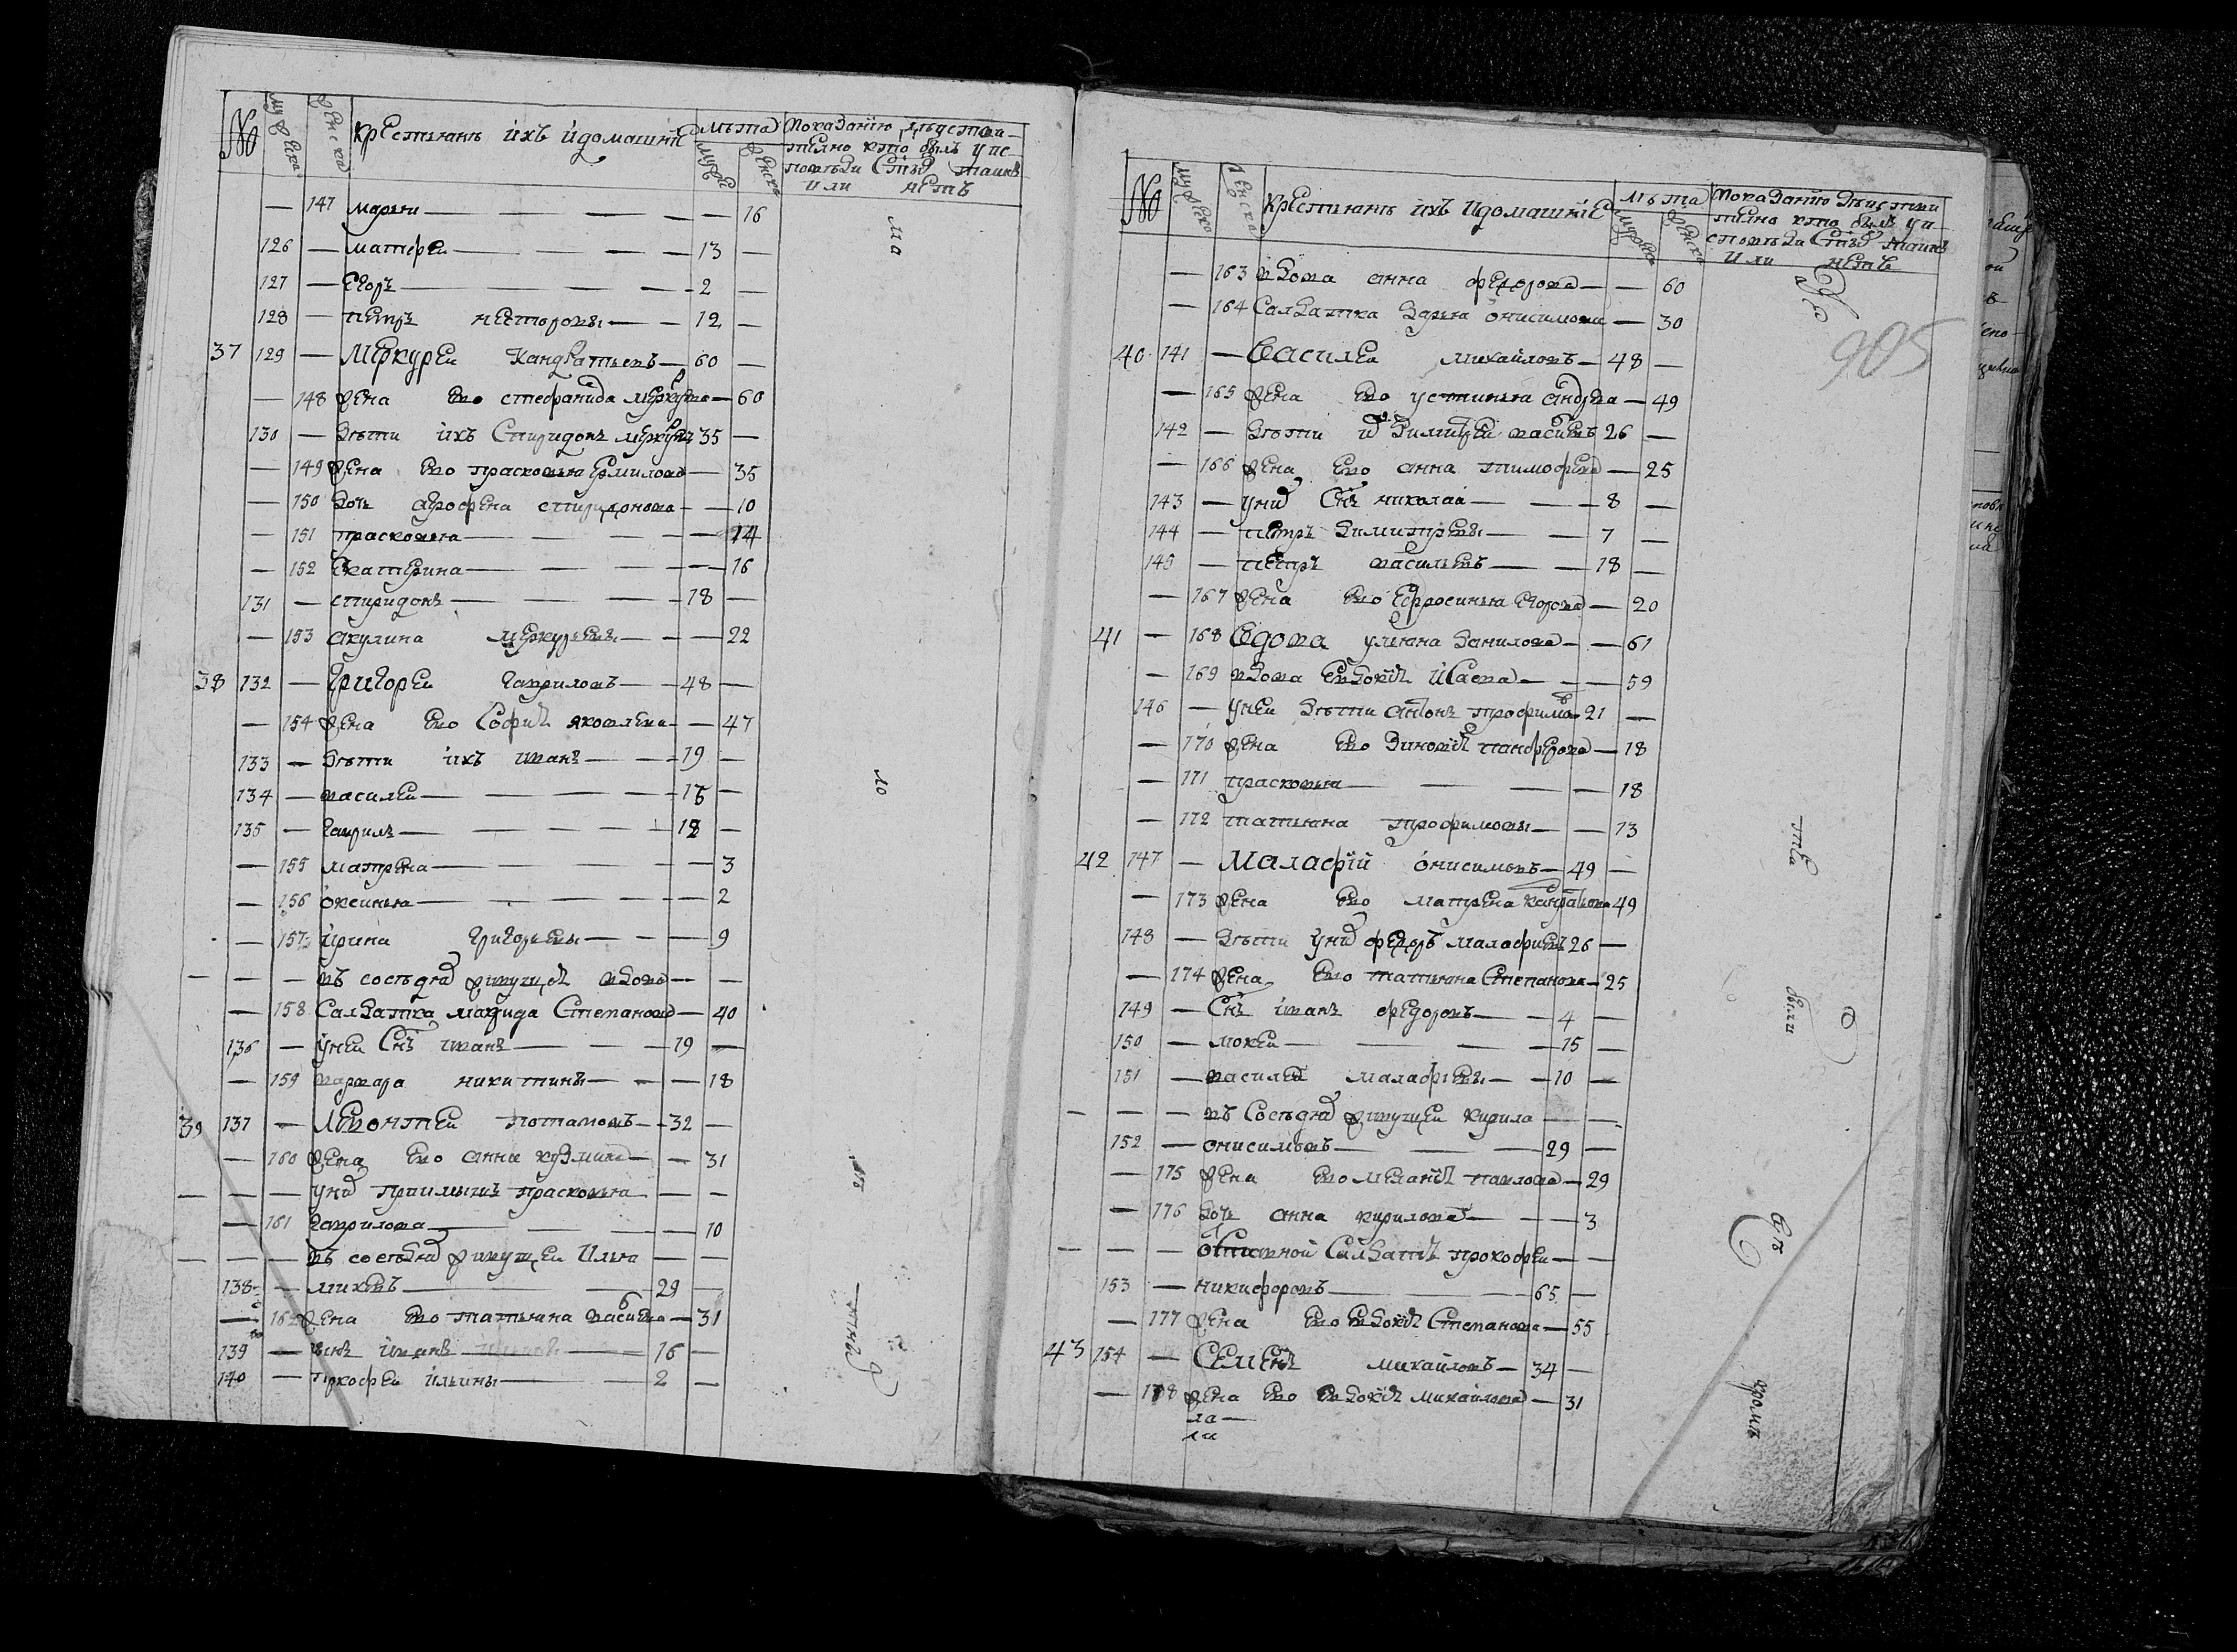 № мужеска женска крестьянъ ихъ и домашние лѣта Показанию дѣистви-
муже женска тѣлно кто былъ у ис-
поведи Стыхъ таинъ
или нетъ
— 147 марья — — 16
126 — матфеи — 13 —
127 — Егоръ — 2 —
128 — петръ несторовы — 12 —
37 129 — Меркуреи Кандратьевъ — 60 —
— 148 жена Ево стефанида — 60
130 — дѣти ихъ Спиридонъ 35 —
— 149 жена Ево прасковья Ермилова — 35
— 150 дочь агрофена спиридонова — 10
— 151 прасковья — 14
— 152 Екатерина — 16
131 — спиридонъ — 18 —
— 153 акулина меркурьевы — 22
38 132 — Григореи гавриловъ — 48 —
— 154 жена Ево Софиѣ яковлева — 47
133 — дѣти ихъ иванъ — 19 —
134 — василеи — 15 —
135 — гаврилъ — 12 —
— 155 матрена — 3
— 156 оксинья — 2
— 157 ирина григорьевы — 9
— — — въ соседяхъ живущеѣ вдова — —
— 158 Салдатка Степанова — 40
136 — у неи Снъ иванъ — 19 —
— 159 варвара никитины — 18
39 137 — Левонтеи потаповъ — 32 —
— 160 жена Ево анна кузмина — 31
— — — у нихъ приимышъ прасковья — —
— 161 гаврилова — 10
— — — въ соседяхъ живущеи Илья — —
138 — михѣевъ — 29 —
— 162 жена Ево татьяна — 31
139 — иванъ — 16 —
140 — прокофеи ильины — 2 —
№ мужеско женска крестьянъ ихъ и домашние лѣта Показанию дѣистви
мужеска женска тѣлно кто былъ у и-
споведи Стыхъ таинъ
или нетъ
905
— 163 вдова анна федорова — 60
— 164 Салдатка дарья онисимова — 30
40 141 — Василеи михайловъ — 48 —
— 165 жена Ево устинья — 49
142 — дѣти ихъ димитреи 26 —
— 166 жена Ево анна тимофеева — 25
143 — у нихъ Снъ николаи — 8 —
144 — петръ димитревы — 7 —
145 — петръ васильевъ — 18 —
— 167 жена Ево Ефросинья Егорова — 20
41 — 168 Вдова ульяна данилова — 61
— 169 вдова Евдокиѣ Исаева — 59
146 — у неи дѣти антонъ трофимовъ 21 —
— 170 жена Ево зиновиѣ панферова — 18
— 171 прасковья — 18
— 172 татьяна трофимовы — 13
42 147 — Малафiй онисимовъ — 49 —
— 173 жена Ево матрена 49
148 — дѣти у нихъ федоръ малафиевъ 26 —
— 174 жена Ево татьяна Степанова — 25
149 — Снъ иванъ федоровъ — 4 —
150 — мокеи — 15 —
151 — василеи малафиевы — 10 —
— — — въ Соседяхъ живущеи кирила — —
152 — онисимовъ — 29 —
— 175 жена Ево меланиѣ павлова — 29
— 176 дочь анна кирилова — 3
— — — отставной Салдатъ прокофеи — —
153 — никифоровъ — 65 —
— 177 жена Ево Евдокиѣ Степанова — 55
43 154 — Семенъ михайловъ — 34 —
— 178 жена Ево Евдокиѣ михайлова — 31
были
кромѣ